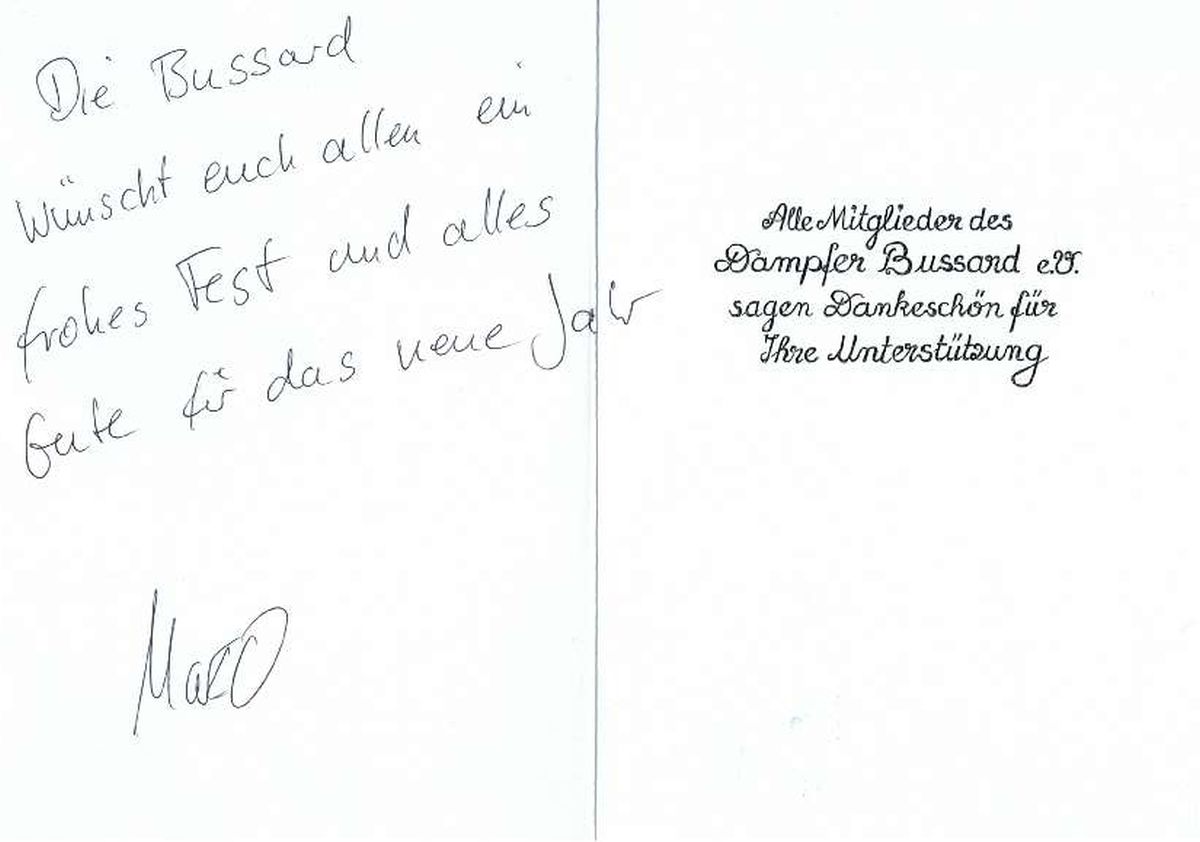 Die Bussard
wünscht euch allen ein
frohes Fest und alles
Gute für das neue Jahr
Alle Mitglieder des
Dampfer Bussard e.V.
sagen Dankeschön für
Ihre Unterstützung